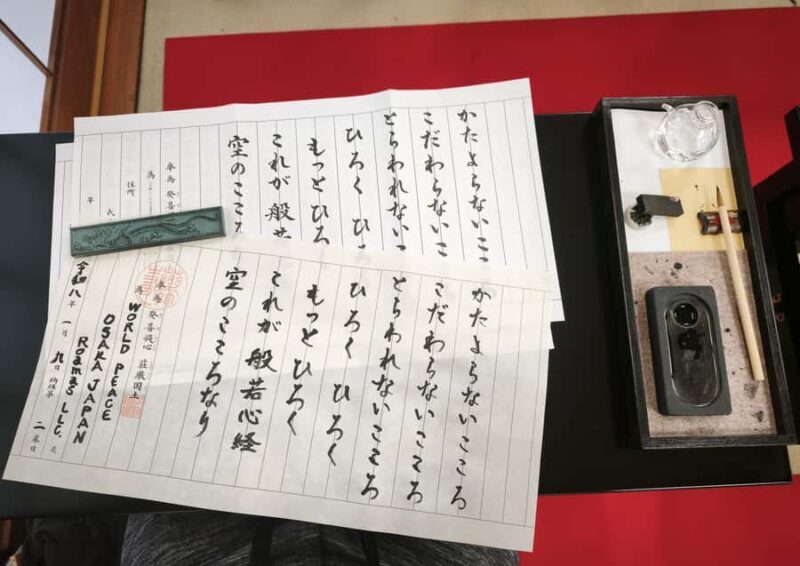 かたよらないここ
こだわらないこ
とらわれない
ひろく ひ
もっと ひろ
これが 般
空のここ
奉為 發菩
為
住所
年 氏
かたよらないこころ
こだわらないこころ
とらわれないこころ
ひろく ひろく
もっと ひろく
これが 般若心経
空のこころなり
奉為 發菩提心 荘厳国土
為 WORLD PEACE
OSAKA JAPAN
Roamas LLC. 氏
令和八年 一月 九日 納経第 二 巻目